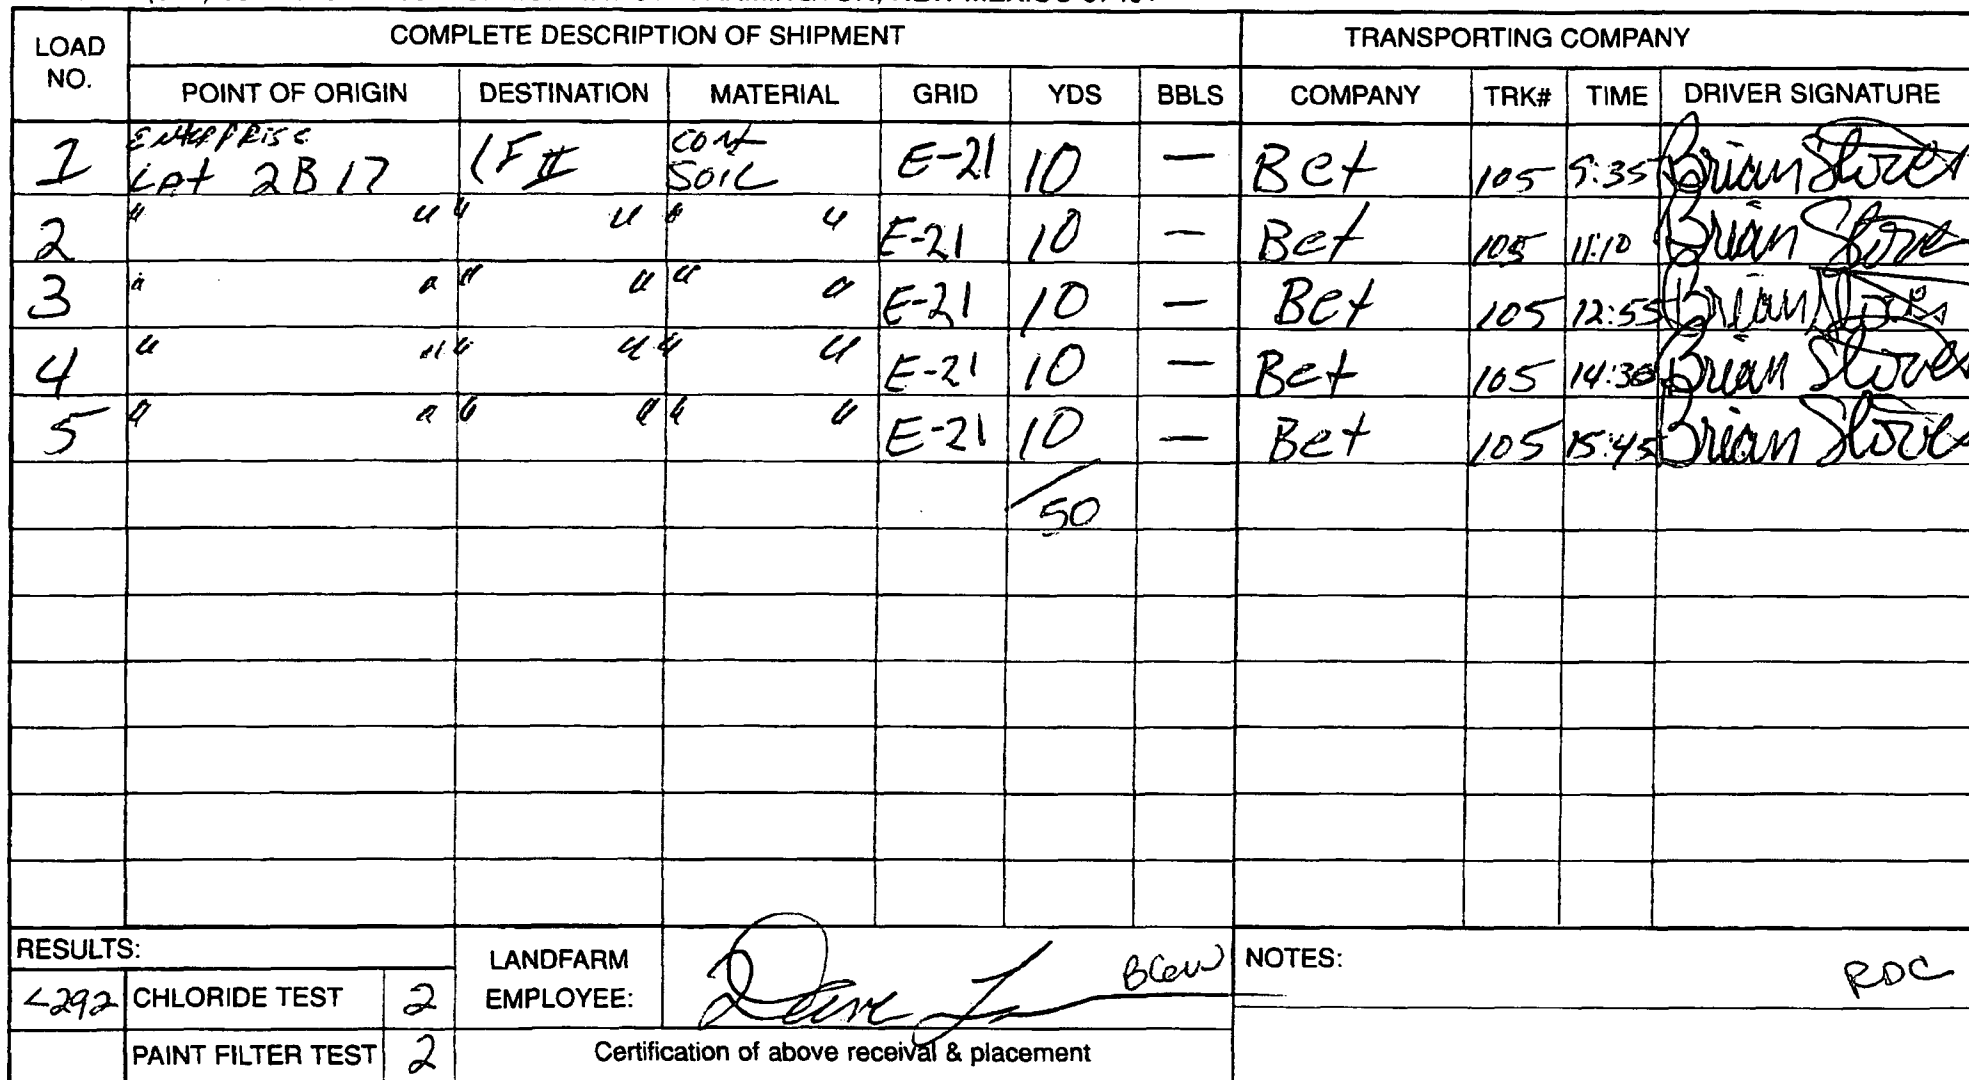 COMPLETE DESCRIPTION OF SHIPMENT TRANSPORTING COMPANY
LOAD NO.
POINT OF ORIGIN DESTINATION MATERIAL GRID YDS BBLS COMPANY TRK# TIME DRIVER SIGNATURE
Enterprise cont
1 Lat 2B 17 LF II Soil E-21 10 — Bet 105 9:35 Brian
2 " " " " " " E-21 10 — Bet 105 11:10 Brian
3 " " " " " " E-21 10 — Bet 105 12:55 Brian
4 " " " " " " E-21 10 — Bet 105 14:30 Brian
5 " " " " " " E-21 10 — Bet 105 15:45 Brian
50
RESULTS:
<292 CHLORIDE TEST 2
PAINT FILTER TEST 2
LANDFARM
EMPLOYEE:
Certification of above receival & placement
NOTES: RDC